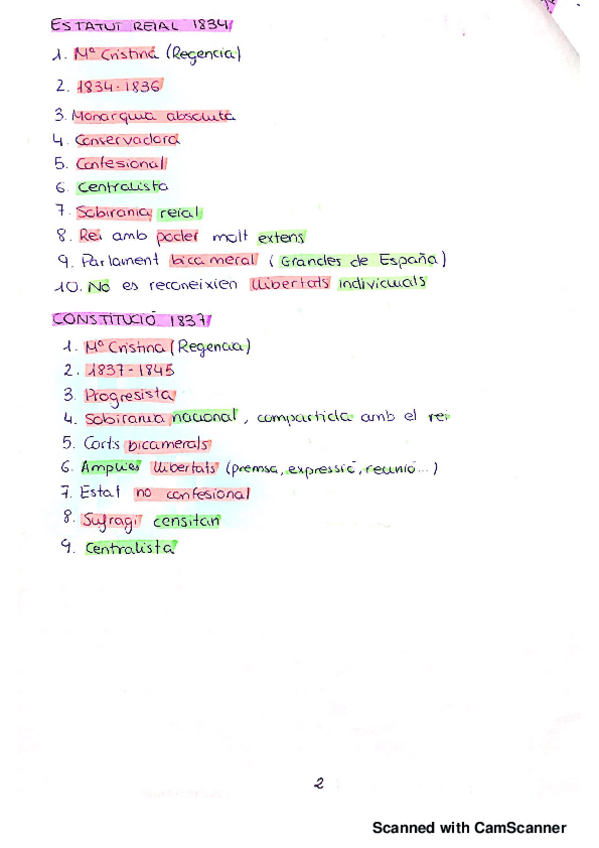 ESTATUT REIAL 1834
1. Mª Cristina (Regencia)
2. 1834-1836
3. Monarquia absoluta
4. Conservadora
5. Confesional
6. Centralista
7. Sobirania reial
8. Rei amb poder molt extens
9. Parlament bicameral (Grandes de España)
10. No es reconeixien llibertats individuals
CONSTITUCIÓ 1837
1. Mª Cristina (Regencia)
2. 1837-1845
3. Progresista
4. Sobirania nacional, compartida amb el rei
5. Corts bicamerals
6. Amplies llibertats (premsa, expressió, reunió...)
7. Estat no confesional
8. Sufragi censitari
9. Centralista
2
Scanned with CamScanner